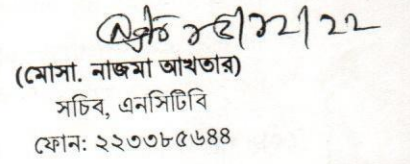 ১৪/১২/২২
(মোসা. নাজমা আখতার)
সচিব, এনসিটিবি
ফোন: ২২৩৩৮৫৬৪৪